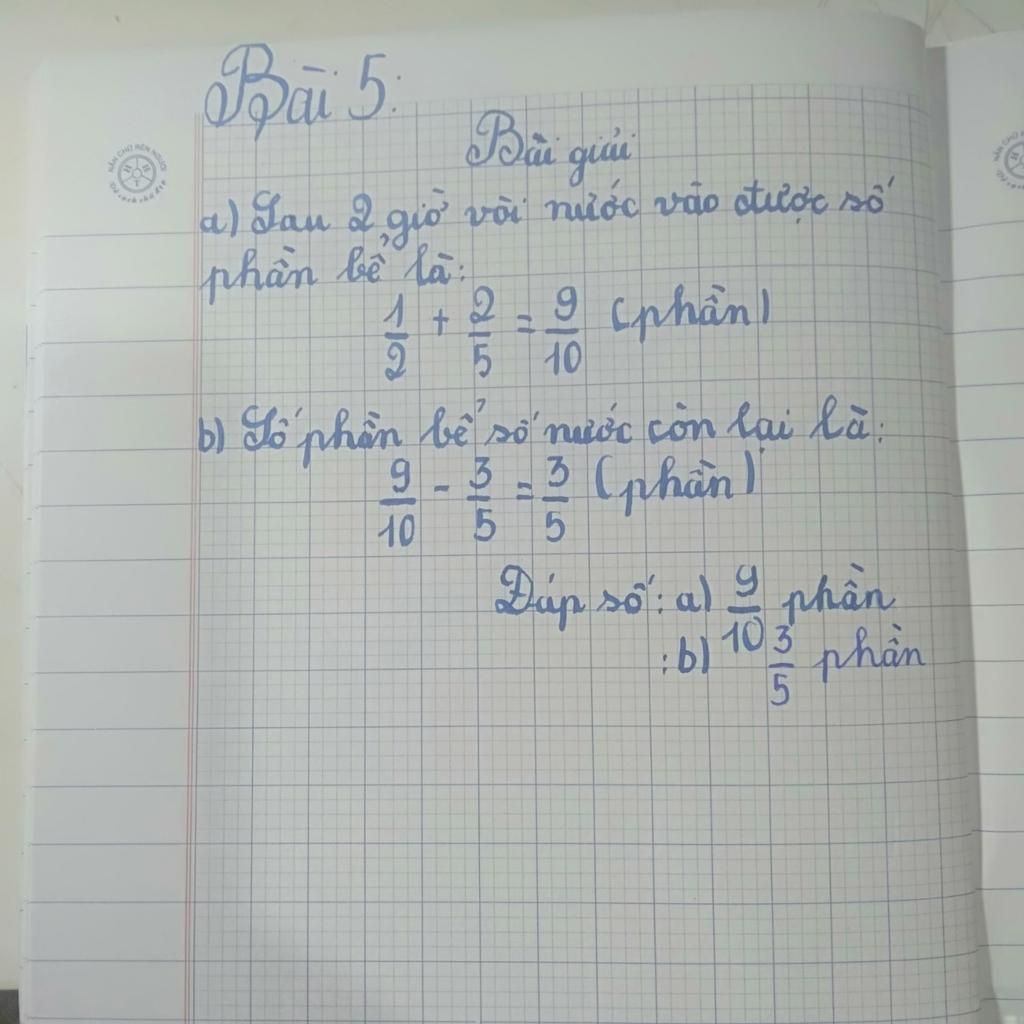 Bài 5:
Bài giải
a) Sau 2 giờ vòi nước vào được số
phần bể là:
1/2 + 2/5 = 9/10 (phần)
b) Số phần bể số nước còn lại là:
9/10 - 3/5 = 3/5 (phần)
Đáp số: a) 9/10 phần
: b) 3/5 phần